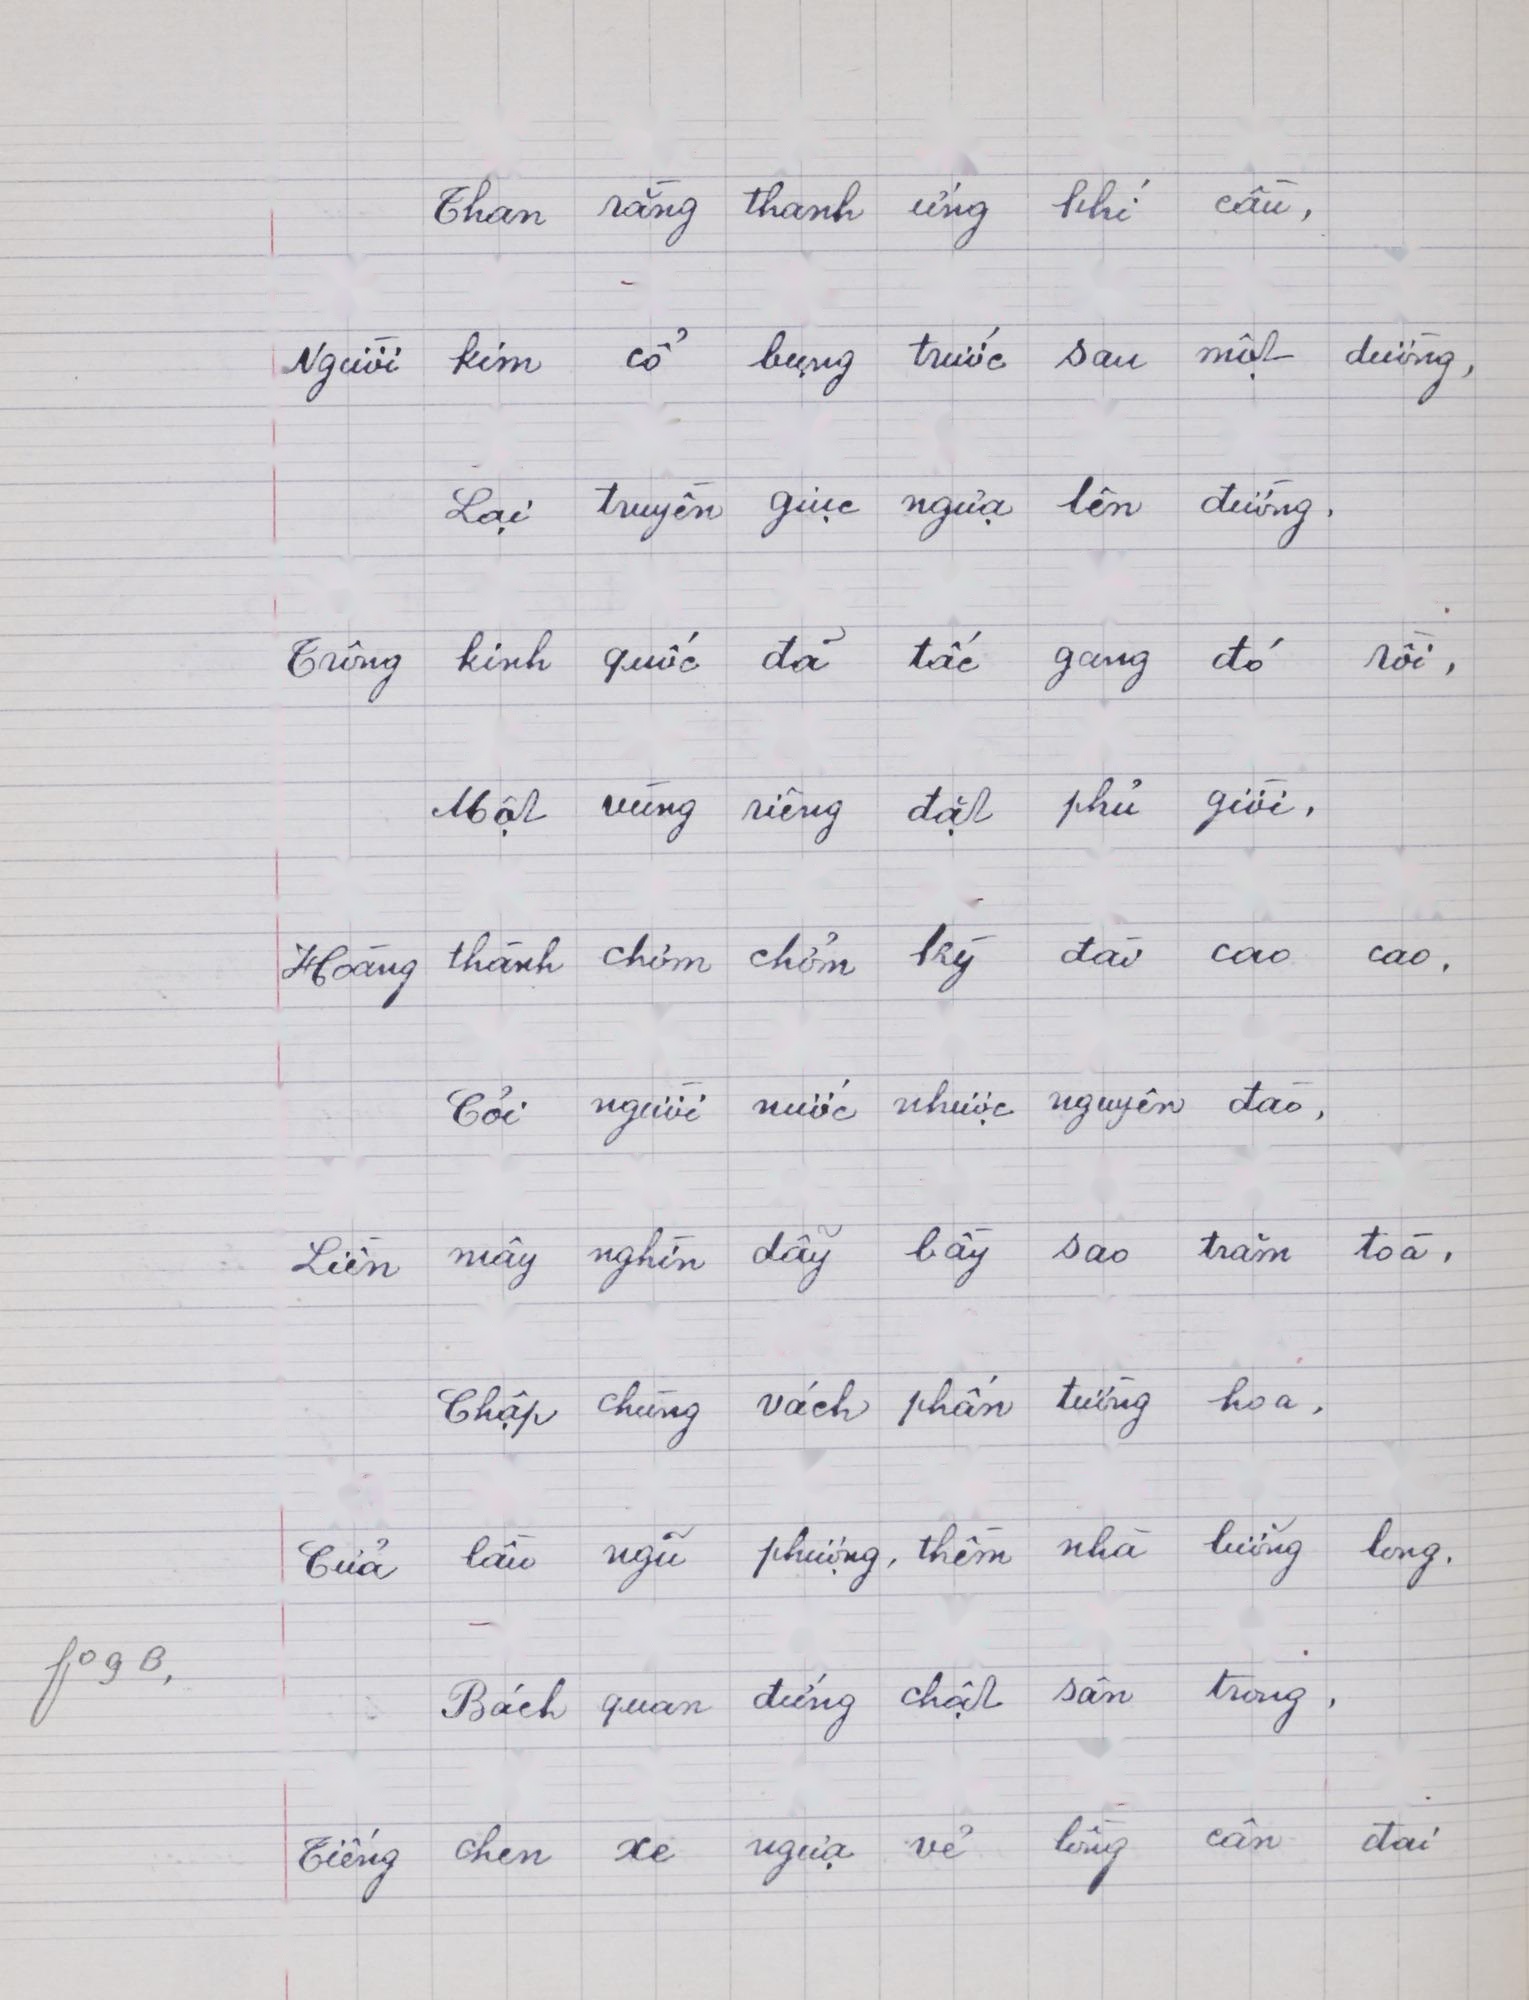 Than rằng thanh ứng khí cầu,
Người kim cổ bụng trước sau một dường,
Lại truyền giục ngựa lên đường.
Trông kinh quốc đã tấc gang đó rồi,
Một vùng riêng đặt phủ giời,
Hoàng thành chởm chởm kỳ đài cao cao,
Cỏi người nước nhược nguyên đào,
Liền mây nghìn dẫy bầy sao trăm toà,
Chập chùng vách phấn tường hoa,
Cửa lầu ngũ phượng, thềm nhà lưỡng long.
fº 9 B,
Bách quan đứng chật sân trong,
Tiếng chen xe ngựa vẻ lồng cân đai